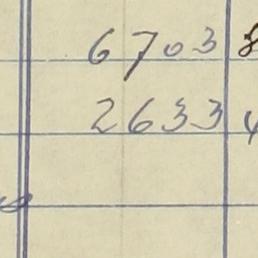 6703 8
2633 4